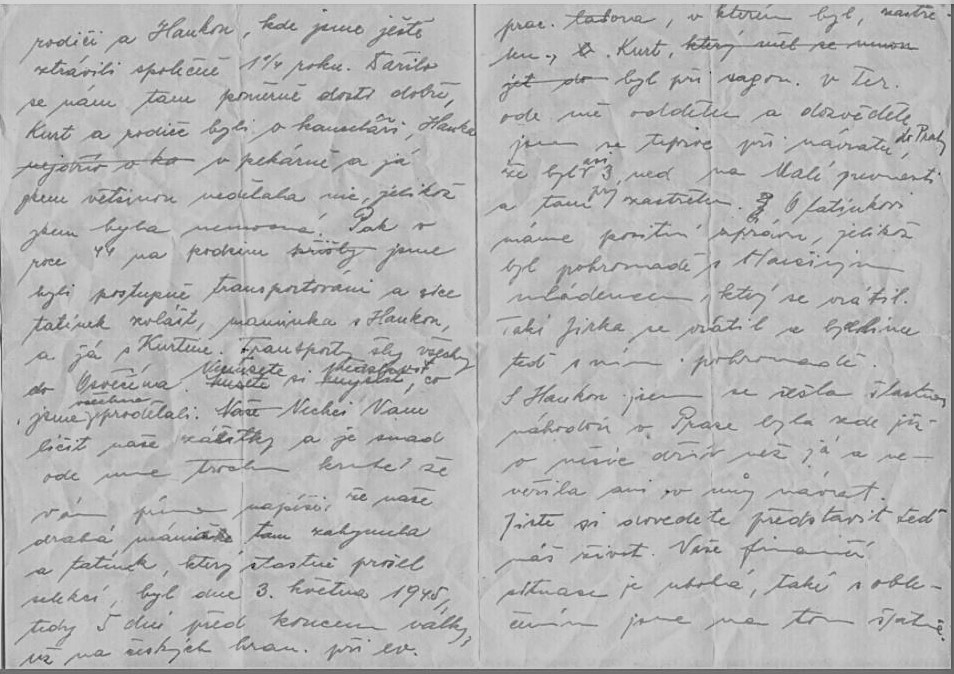 rodiči a Hankou, kde jsme ještě
ztrávili společně 1¼ roku. Dařilo
se nám tam poměrně dosti dobře,
Kurt a rodiče byli v kanceláři, Hanka
v pekárně a já
jsem většinou nedělala nic, jelikož
jsem byla nemocná. Pak v
roce 44 na podzim jsme
byli postupně transportováni a sice
tatínek zvlášť, maminka s Hankou,
a já s Kurtem. Transporty šly všechny
do Osvěčína. Nemůžete si představit, co
jsme všechno prodělali. Nechci Vám
líčit naše zážitky a je snad
ode mne trochu kruté, že
vám píšu napíši, že naše
drahá maminka tam zahynula
a tatínek, který šťastně prošel
selekcí, byl dne 3. května 1945,
tedy 5 dnů před koncem války,
už na českých hran. při ev.
prac. tabora, v kterém byl, zastře-
len. Kurt, který měl se mnou
jít do byl při vagon. v Ter.
ode mě oddělen a dozvěděla
jsem se teprve při návratu do Prahy,
že byl asi 3. ned na Malé pevnosti
a tam prý zastřelen. O tatínkovi
máme positivní zprávu, jelikož
byl pohromadě s
mládencem, který se vrátil.
Také Jirka se vrátil a bydlíme
teď s ním pohromadě.
S Hankou jsem se sešla šťastnou
náhodou v Praze byla zde již
o měsíc dřív než já a ne-
věřila ani v můj návrat.
Jistě si dovedete představit teď
náš život. Naše finanční
situace je ubohá, také s oble-
čením jsme na tom špatně.